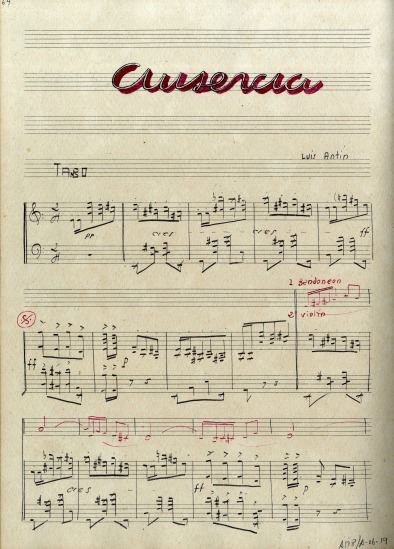 64
Ausencia
Luis Antin
TANGO
pp cres cres ff
1 Bandoneon
2 violin
ff p
cres ff p